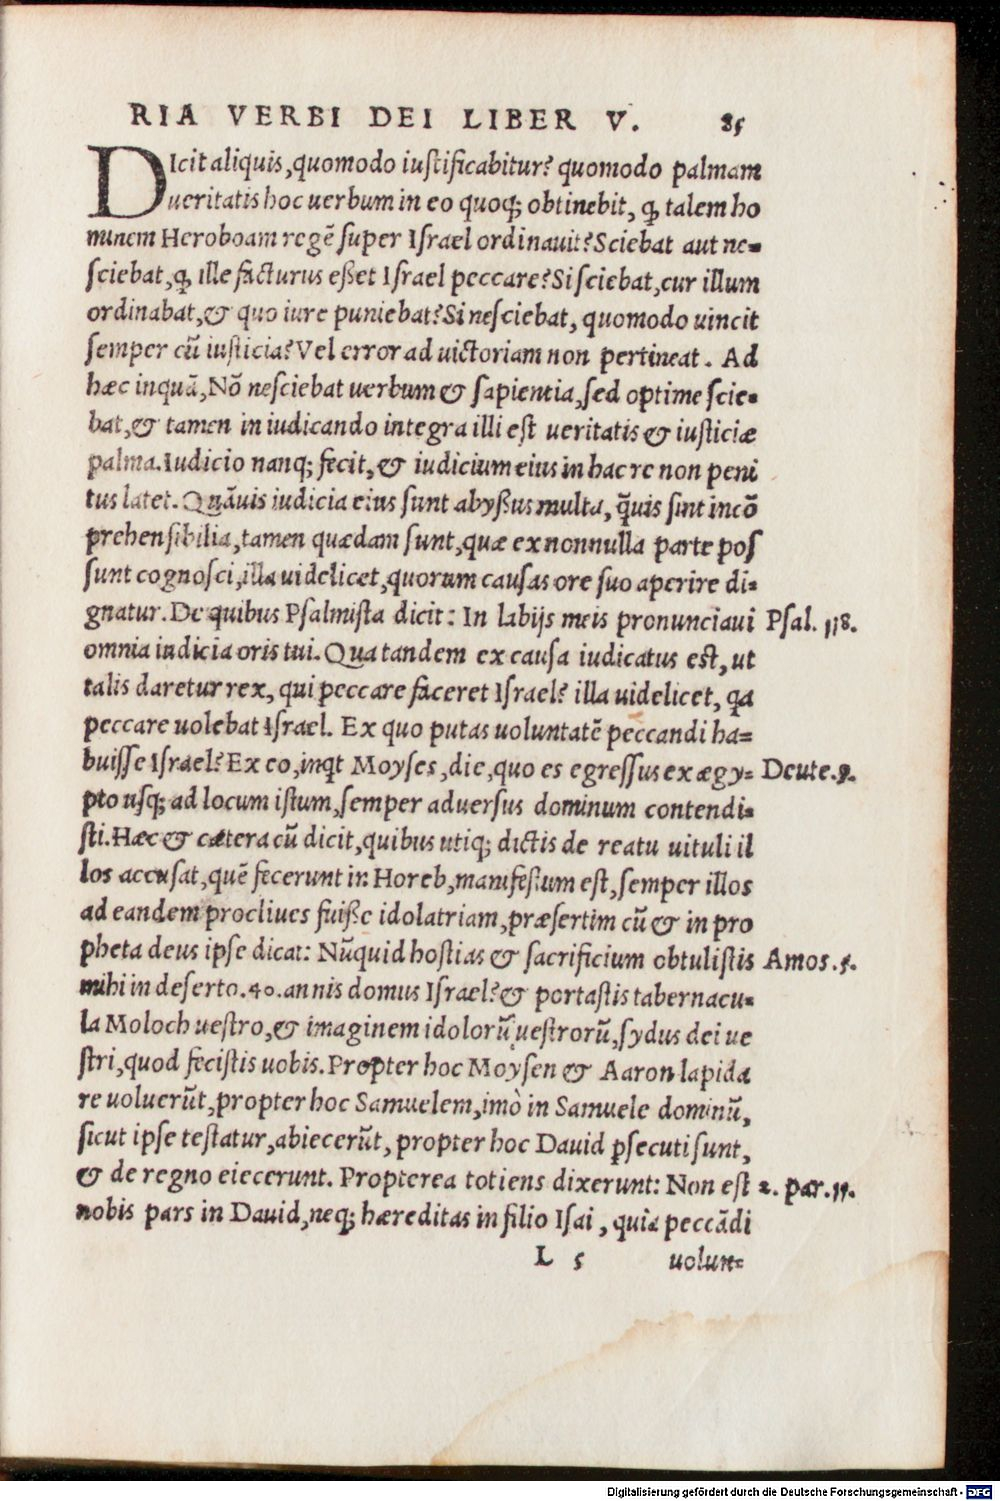 RIA VERBI DEI LIBER V. 85
DIcit aliquis, quomodo iustificabitur? quomodo palmam
ueritatis hoc uerbum in eo quoq; obtinebit, q̨ talem ho
minem Heroboam regē super Israel ordinauit? Sciebat aut ne=
sciebat, q̨ ille facturus eßet Israel peccare? Si sciebat, cur illum
ordinabat, & quo iure puniebat? Si nesciebat, quomodo uincit
semper cū iusticia? Vel error ad uictoriam non pertineat. Ad
hæc inquā, Nō nesciebat uerbum & sapientia, sed optime scie=
bat, & tamen in iudicando integra illi est ueritatis & iusticiæ
palma. Iudicio nanq; fecit, & iudicium eius in hac re non peni
tus latet. Quāuis iudicia eius sunt abyßus multa, q̄uis sint incō
prehensibilia, tamen quædam sunt, quæ ex nonnulla parte pos
sunt cognosci, illa uidelicet, quorum causas ore suo aperire di=
gnatur. De quibus Psalmista dicit: In labijs meis pronunciaui Psal. 118.
omnia iudicia oris tui. Qua tandem ex causa iudicatus est, ut
talis daretur rex, qui peccare faceret Israel? illa uidelicet, qa
peccare uolebat Israel. Ex quo putas uoluntatē peccandi ha=
buisse Israel? Ex eo, inqt Moyses, die, quo es egressus ex ægy= Deute. 9.
pto usq; ad locum istum, semper aduersus dominum contendi=
sti. Hæc & cætera cū dicit, quibus utiq; dictis de reatu uituli il
los accusat, quē fecerunt in Horeb, manifestum est, semper illos
ad eandem procliues fuiße idolatriam, præsertim cū & in pro
pheta deus ipse dicat: Nūquid hostias & sacrificium obtulistis Amos. 5.
mihi in deserto. 40. annis domus Israel? & portastis tabernacu=
la Moloch uestro, & imaginem idolorū uestrorū, sydus dei ue
stri, quod fecistis uobis. Propter hoc Moysen & Aaron lapida
re uoluerūt, propter hoc Samuelem, imò in Samuele dominū,
sicut ipse testatur, abiecerūt, propter hoc Dauid ꝑsecuti sunt,
& de regno eiecerunt. Propterea totiens dixerunt: Non est 2. par. 11.
nobis pars in Dauid, neq; hæreditas in filio Isai, quia peccādi
L 5 uolun=
Digitalisierung gefördert durch die Deutsche Forschungsgemeinschaft - DFG